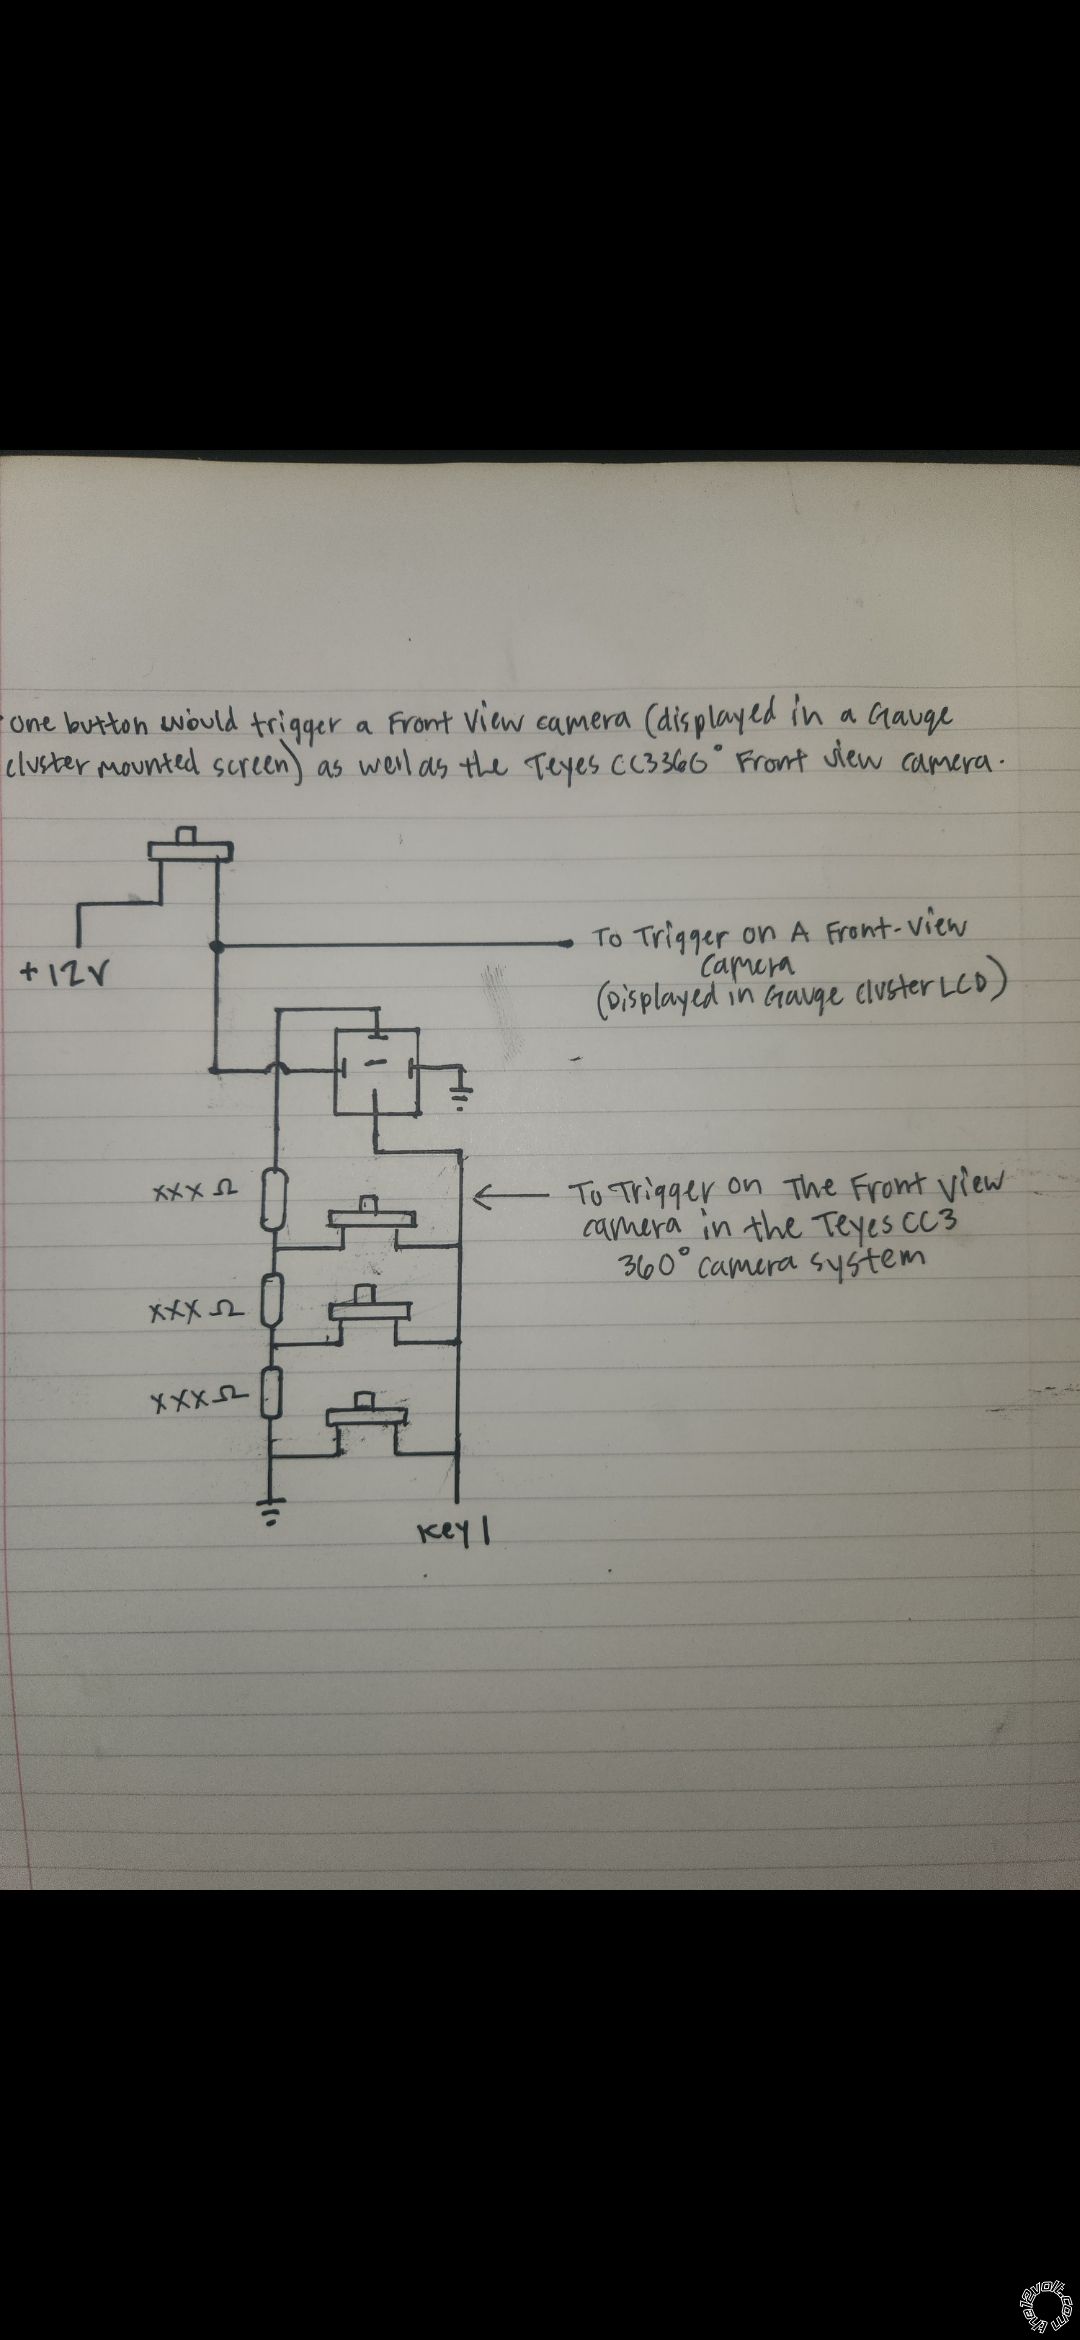 one button would trigger a Front view camera (displayed in a Gauge
cluster mounted screen) as well as the Teyes CC3 360° Front view camera.
+12V
To Trigger on A Front-view
camera
(Displayed in Gauge cluster LCD)
xxx Ω
To Trigger on The Front view
camera in the Teyes CC3
360° camera system
xxx Ω
xxx Ω
Key 1
the12volt.com